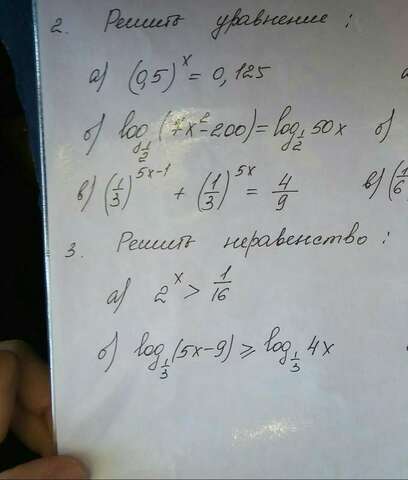 2. Решить уравнение :
а) (0,5)^x = 0,125
б) log_{1/2} (7x² - 200) = log_{1/2} 50x б)
в) (1/3)^{5x-1} + (1/3)^{5x} = 4/9 в) (1/6
3. Решить неравенство :
а) 2^x > 1/16
б) log_{1/3} (5x-9) ≥ log_{1/3} 4x